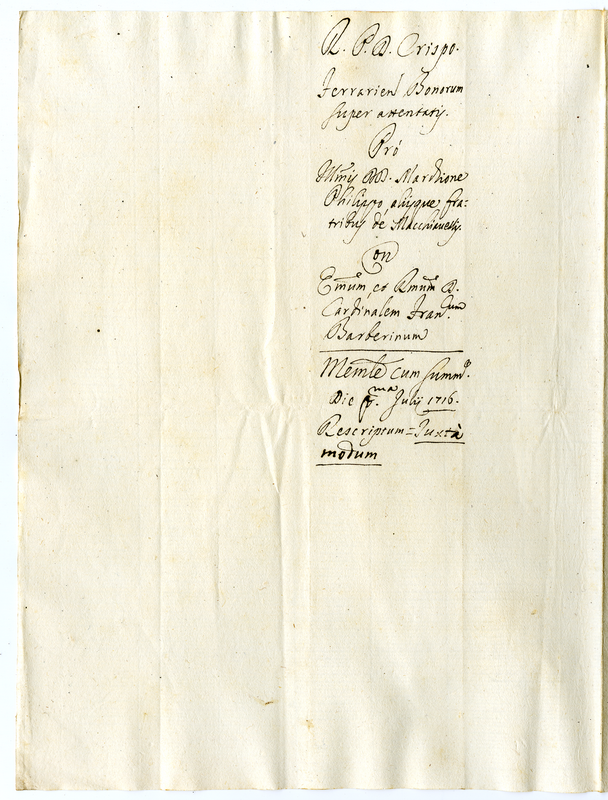 R. P. D. Crispo.
Ferrarien' Bonorum
super attentatis.
Pro
Illmis DD. Marchione
Philippo aliisque fra=
tribus de Macchiavellis.
Con
Emum, et Rmum D.
Cardinalem Fran.cum
Barberinum
Memle cum summo.
Die pma. Julij 1716.
Rescriptum = Juxta
modum